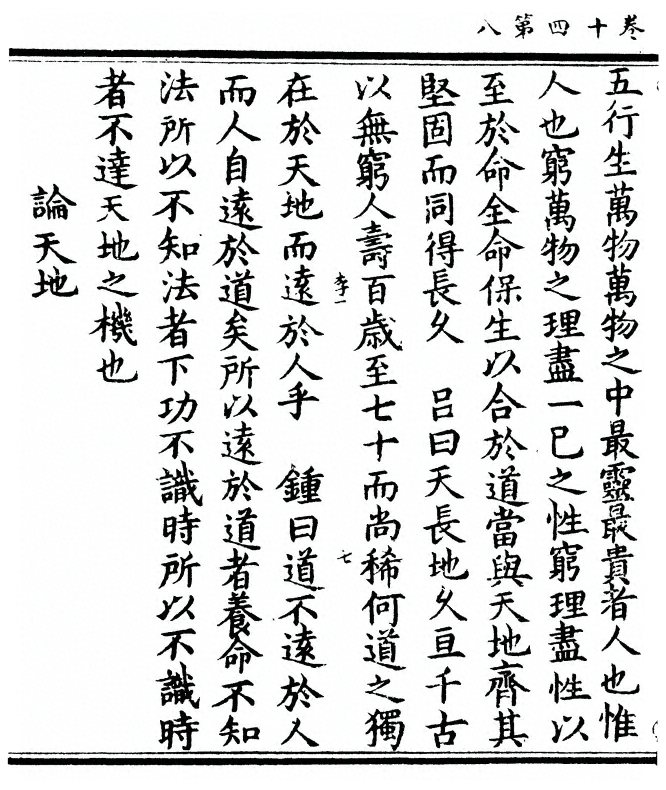 卷十四第八
五行生萬物萬物之中最靈最貴者人也惟
人也窮萬物之理盡一已之性窮理盡性以
至於命全命保生以合於道當與天地齊其
堅固而同得長久　吕曰天長地久亘千古
以無窮人壽百歳至七十而尚稀何道之獨
李一
七
在於天地而遠於人乎　鍾曰道不遠於人
而人自遠於道矣所以遠於道者養命不知
法所以不知法者下功不識時所以不識時
者不達天地之機也
論天地